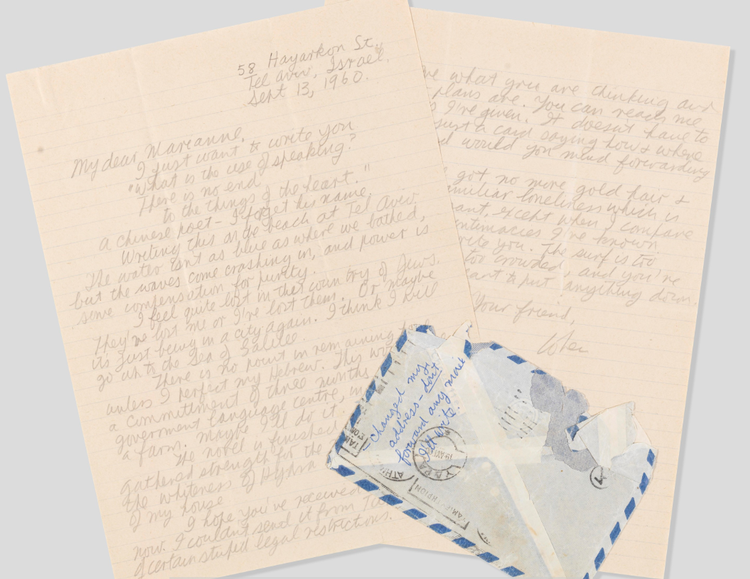 58 Hayarkon St.,
Tel Aviv, Israel.
Sept 13, 1960.
My dear Marianne,
I just want to write you
"What is the use of speaking?
There is no end
to the things of the heart."
a Chinese poet - I forget his name.
Writing this on the beach at Tel Aviv.
The water isn't as blue as where we bathed,
but the waves come crashing in, and power is
some compensation for purity.
I feel quite lost in this country of Jews.
They've lost me or I've lost them. Or maybe
it's just being in a city again. I think I will
go up to the Sea of Galilee
There is no point in remaining here
unless I perfect my Hebrew. This
a committment of three months
government language centre,
a farm. Maybe I'll do it,
The novel is finished
gathered strength for the
the whiteness of Hydra
of my house
I hope you've received
now. I couldn't send it from
of certain stupid legal restrictions.
what you are thinking and
plans are. You can reach me
I've given. It doesn't have to
just a card saying how & where
would you mind forwarding
got no more gold hair &
familiar loneliness which is
except when I compare
intimacies I've known
you. The surf is too
too crowded and you're
to put anything down.
Your friend,
Changed my
address - don't
forward any more
I'll write.